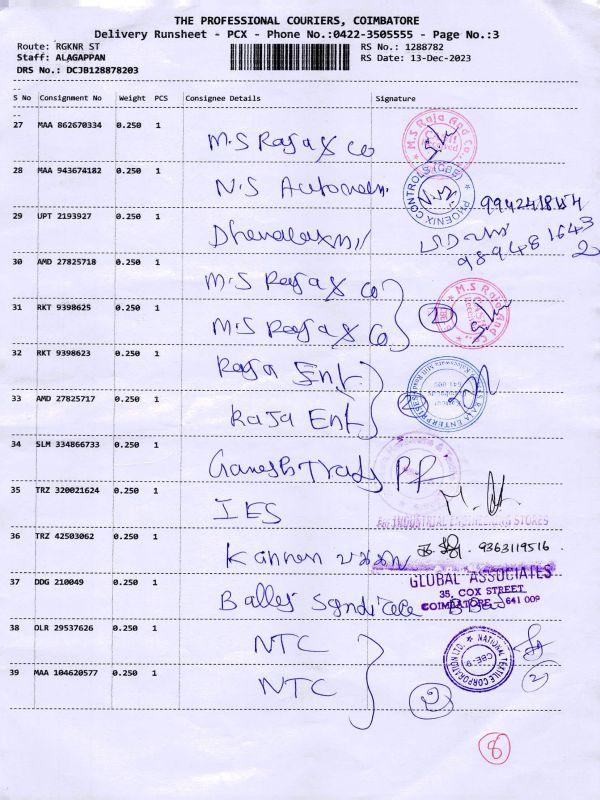 THE PROFESSIONAL COURIERS, COIMBATORE
Delivery Runsheet - PCX - Phone No.:0422-3505555 - Page No.:3
Route: RGKNR ST
RS No.: 1288782
Staff: ALAGAPPAN
RS Date: 13-Dec-2023
DRS No.: DCJB128878203
S No Consignment No Weight PCS Consignee Details Signature
27 MAA 862670334 0.250 1 M.S Raja & Co
M.S Raja And Co.
28 MAA 943674182 0.250 1 N.S
PHOENIX CONTROLS (CBE)
29 UPT 2193927 0.250 1 Dhanalaxmi
30 AMD 27825718 0.250 1 M.S Raja & Co
31 RKT 9398625 0.250 1 M.S Raja & Co
2
M.S Raja And Co.
32 RKT 9398623 0.250 1 Raja Ent.
33 AMD 27825717 0.250 1 Raja Ent
2
RAJA ENTERPRISES
641 009
34 SLM 334866733 0.250 1 Ganesh
35 TRZ 320021624 0.250 1 IES
For INDUSTRIAL ENGINEERING STORES
36 TRZ 42503062 0.250 1 Kannan
9363119516.
37 DDG 210049 0.250 1
GLOBAL ASSOCIATES
35, COX STREET
COIMBATORE - 641 009
38 DLR 29537626 0.250 1 NTC
39 MAA 104620577 0.250 1 NTC
2
NATIONAL TEXTILE CORPORATION LTD.
CBE-9
2
8